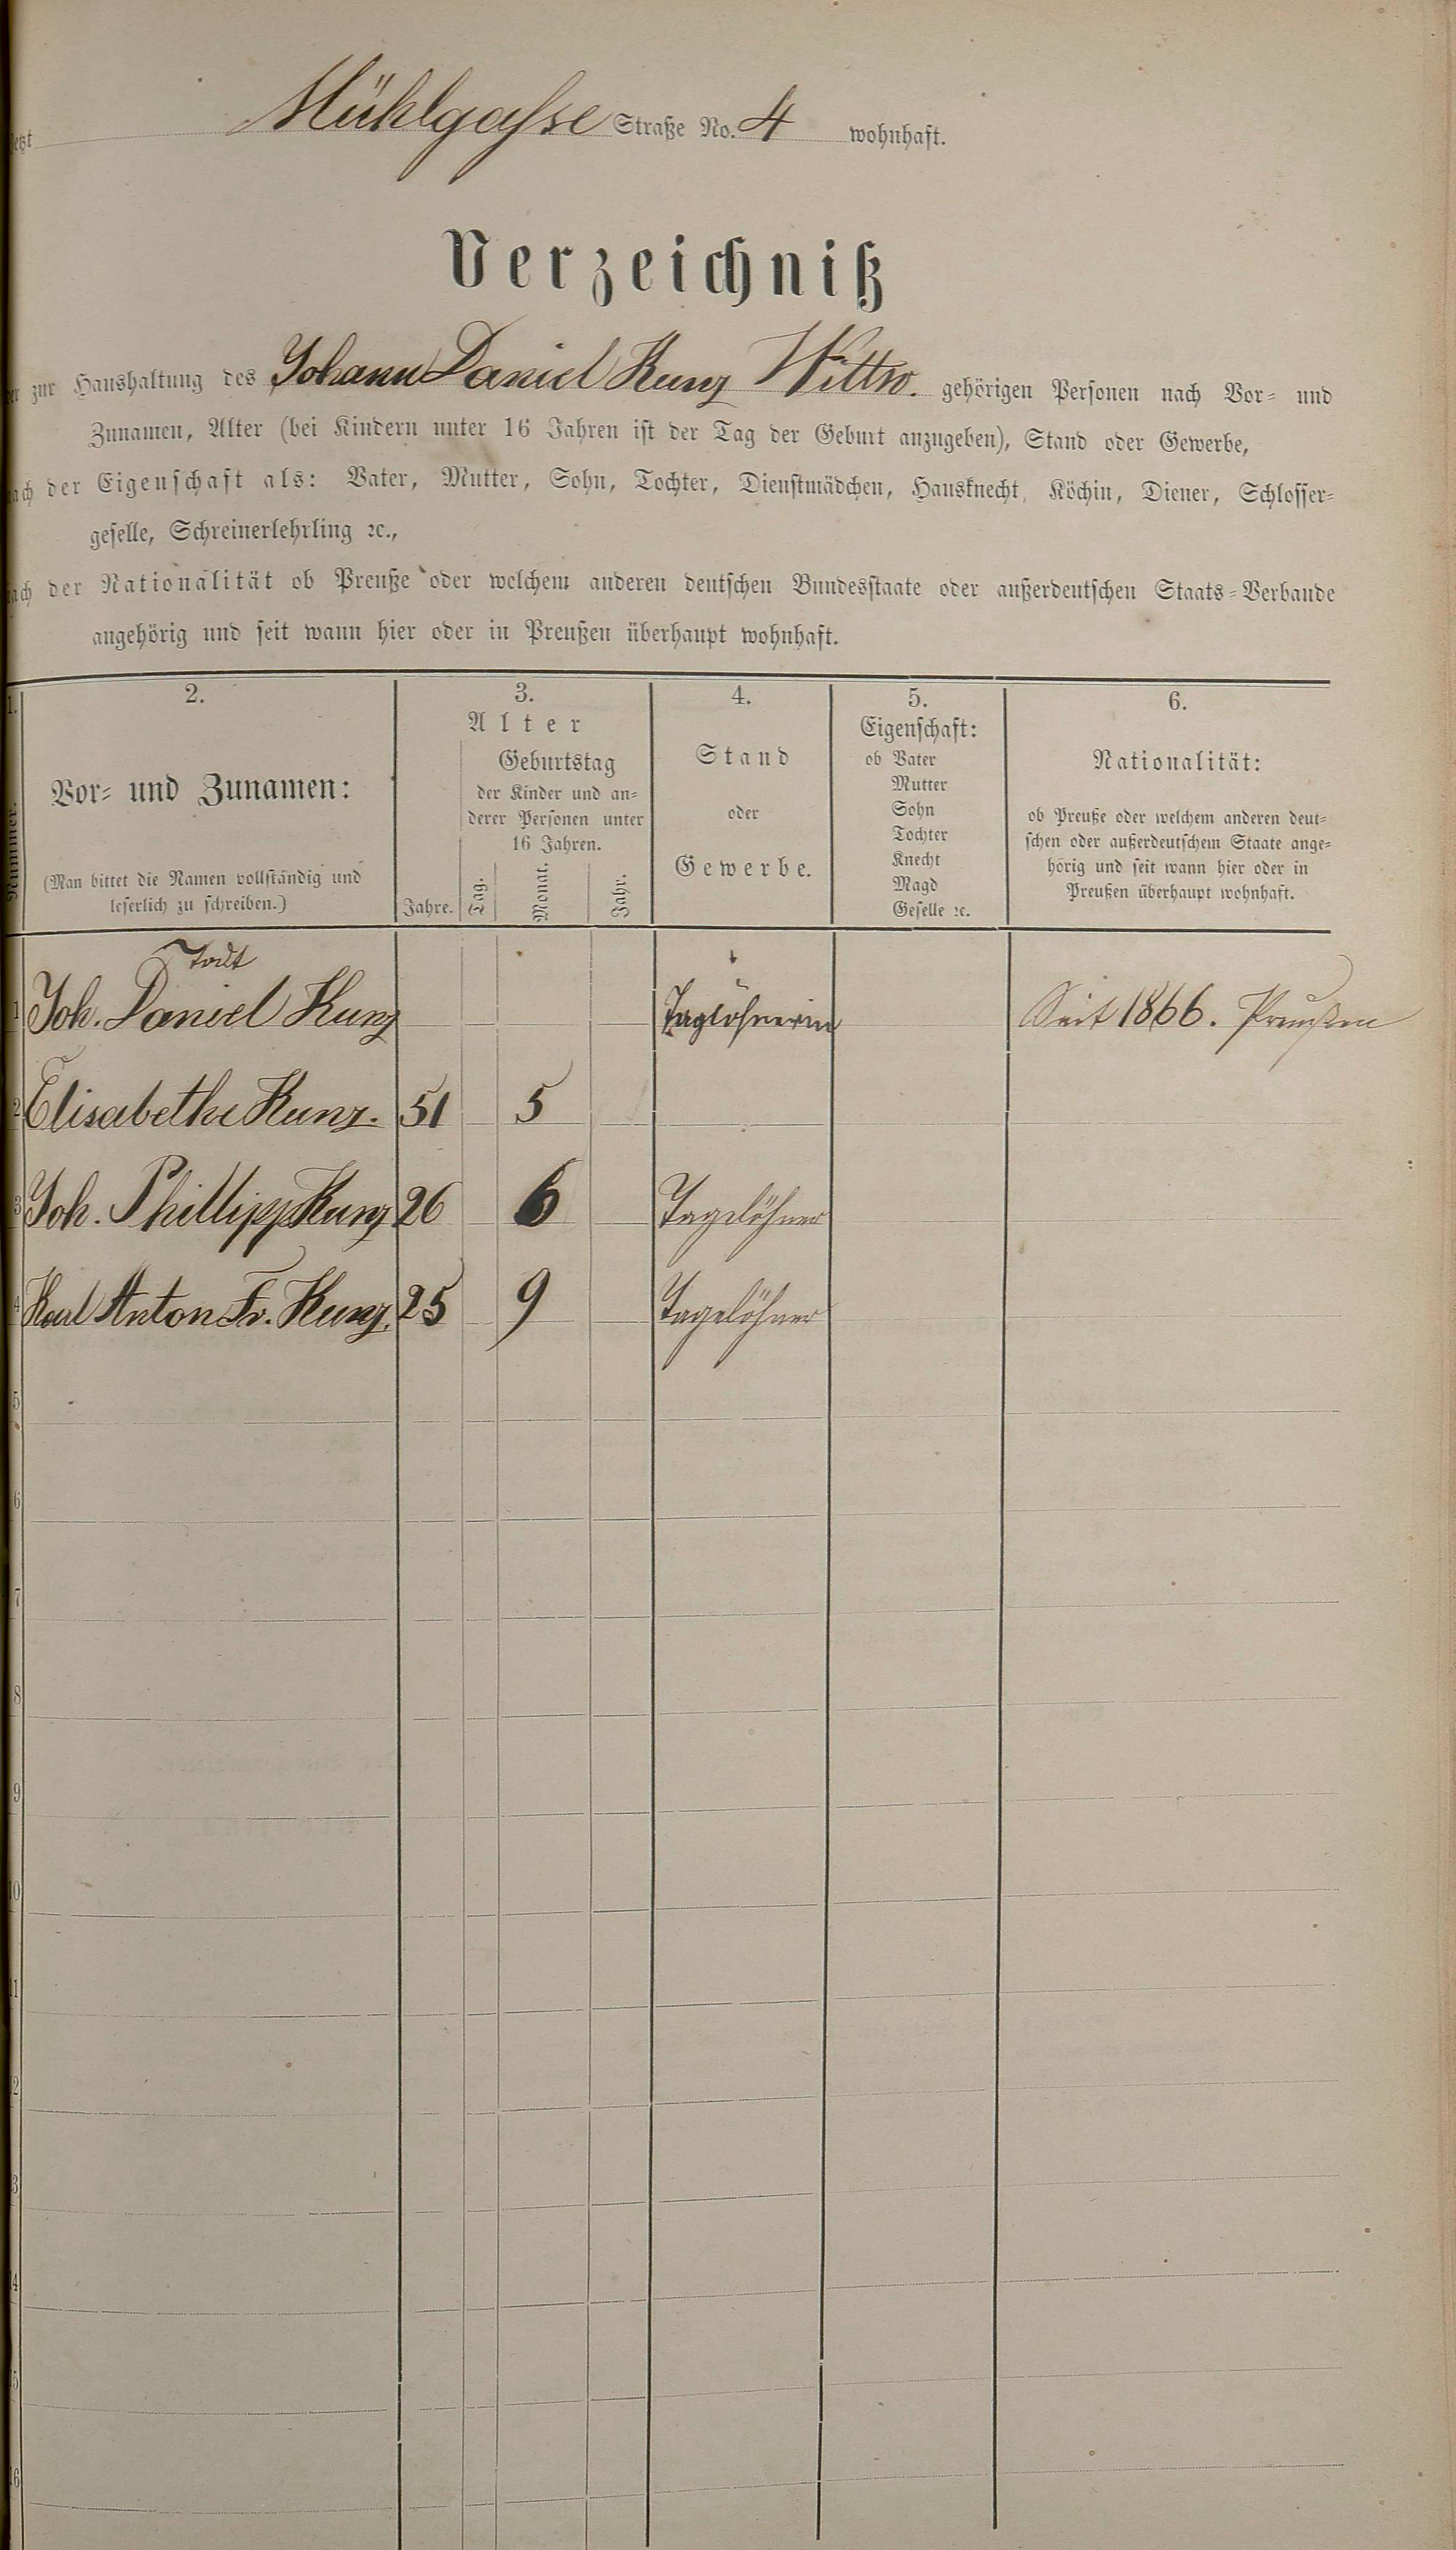 Mühlgasse Straße No. 4 wohnhaft.
Verzeichniß
zur Haushaltung des Johann Daniel Kunz Wittw. gehörigen Personen nach Vor- und
Zunamen, Alter (bei Kindern unter 16 Jahren ist der Tag der Geburt anzugeben), Stand oder Gewerbe,
nach der Eigenschaft als: Vater, Mutter, Sohn, Tochter, Dienstmädchen, Hausknecht, Köchin, Diener, Schlosser-
geselle, Schreinerlehrling ꝛc.,
nach der Nationalität ob Preuße oder welchem anderen deutschen Bundesstaate oder außerdeutschen Staats-Verbande
angehörig und seit wann hier oder in Preußen überhaupt wohnhaft.
1.
Nummer.
2.
Vor- und Zunamen:
(Man bittet die Namen vollständig und
leserlich zu schreiben.)
3.
Alter
Geburtstag
der Kinder und an-
derer Personen unter
16 Jahren.
Jahre. Tag. Monat. Jahr.
4.
Stand
oder
Gewerbe.
5.
Eigenschaft:
ob Vater
Mutter
Sohn
Tochter
Knecht
Magd
Geselle ꝛc.
6.
Nationalität:
ob Preuße oder welchem anderen deut-
schen oder außerdeutschem Staate ange-
hörig und seit wann hier oder in
Preußen überhaupt wohnhaft.
Todt
1 Joh. Daniel Kunz Taglöhnerin Seit 1866. Preußen
2 Elisabethe Kunz. 51 5
3 Joh. Phillipp Kunz 26 6 Tagelöhner
4 Karl Anton Fr. Kunz. 25 9 Tagelöhner
5
6
7
8
9
10
11
12
13
14
15
16